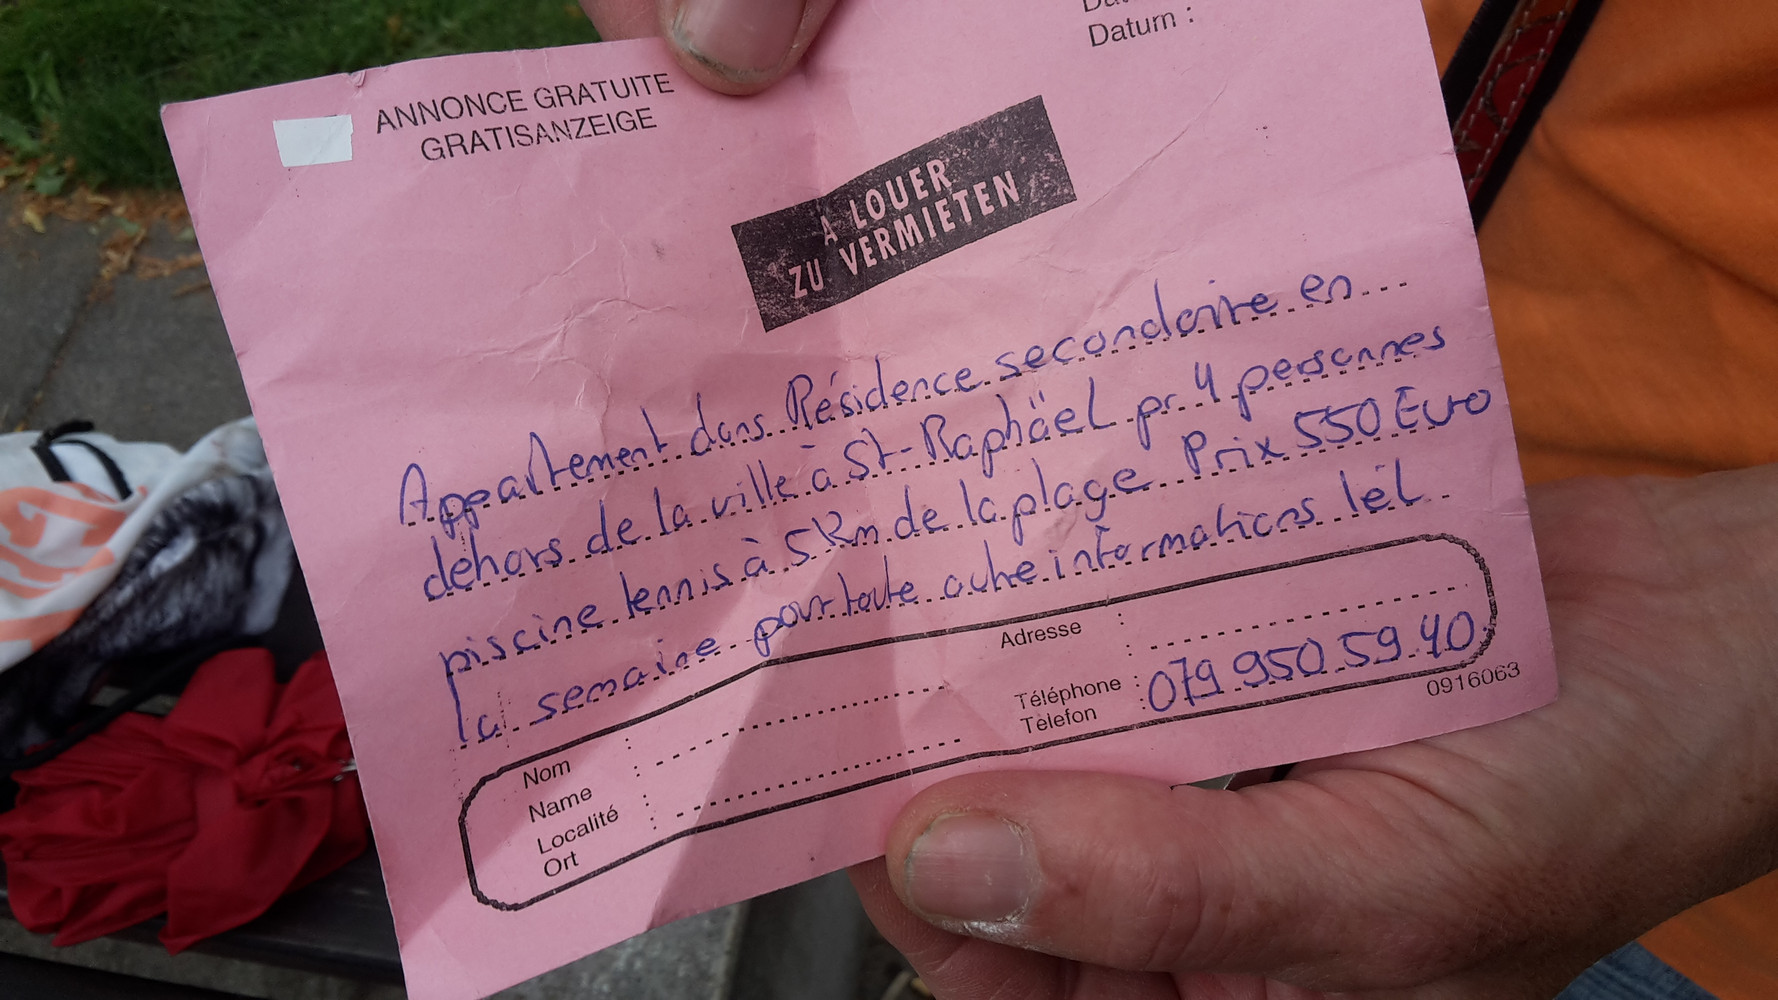 Datum :
ANNONCE GRATUITE
GRATISANZEIGE
A LOUER
ZU VERMIETEN
Appeartement dans Résidence secondaire en
dehors de la ville à St-Raphäel pr 4 personnes
piscine tennis à 5 Km de la plage Prix 550 Euro
la semaine pour toute autre informations tél
Adresse :
Téléphone : 079 950 59 40
Telefon
0916063
Nom :
Name :
Localité :
Ort :